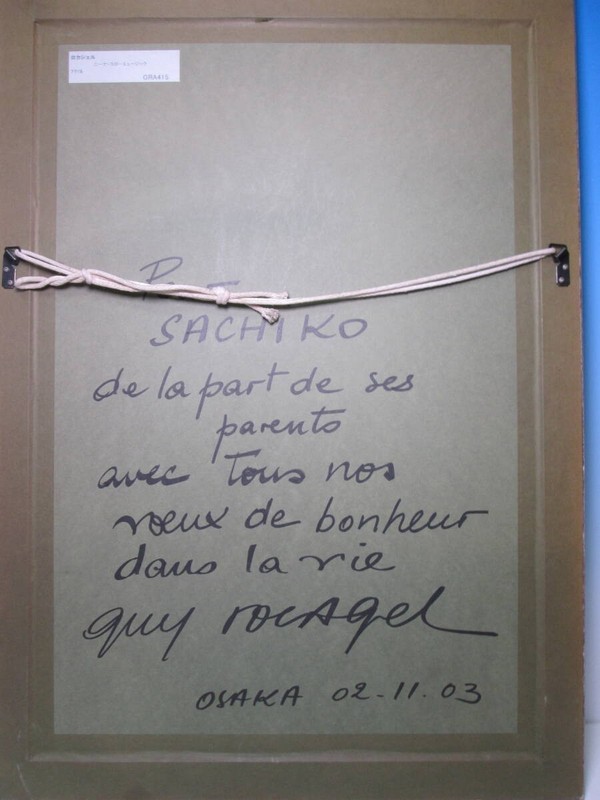 GRA415
SACHIKO
de la part de ses
parents
avec tous nos
vœux de bonheur
dans la vie
guy
OSAKA 02-11.03